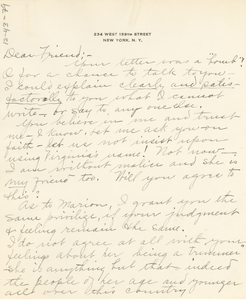 234 WEST 135TH STREET
NEW YORK, N. Y.
Dear Friend,-
Your letter was a "honk".
O for a chance to talk to you -
I could explain clearly and satis-
factorily to you what I cannot
write, or say to any one else.
You believe in me and trust
me - I know. Let me ask you on
faith - let us not insist upon
using Virginia's name. Not now -
I am without malice and she is
my friend too. Will you agree to
this?
As to Marion, I grant you the
same privilege, if your judgment
& feeling remain the same.
I do not agree at all with your
feelings about her being a
She is anything but that - indeed
the people of her age and younger
all over this country